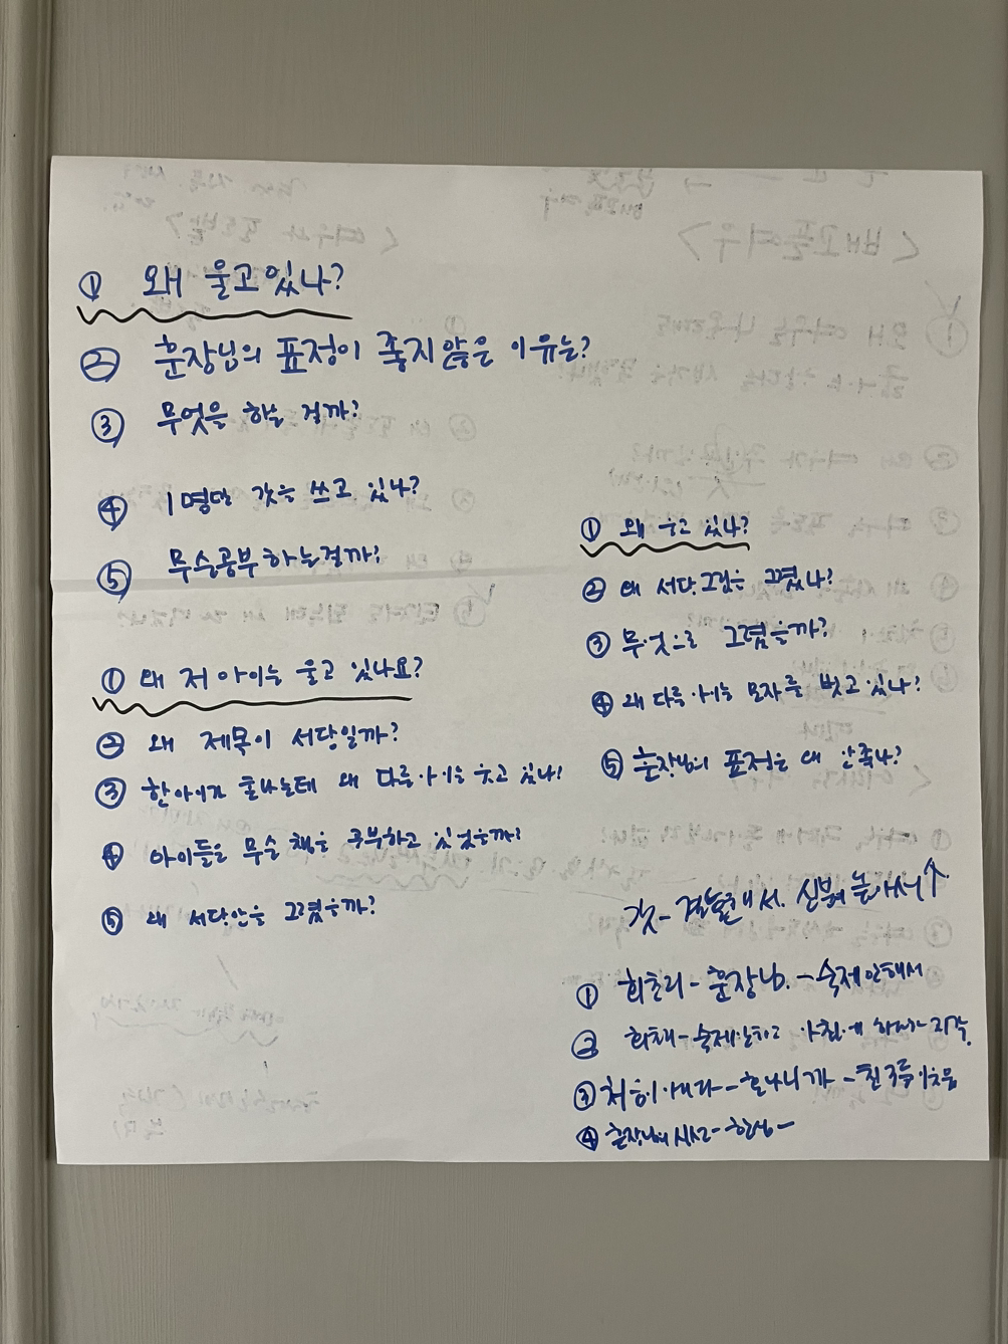 ① 왜 울고있나?
② 훈장님의 표정이 좋지 않은 이유는?
③ 무엇을 하는 걸까?
④ 1명만 갓을 쓰고 있나?
⑤ 무슨공부하는걸까?
① 왜 저 아이는 울고 있나요?
② 왜 제목이 서당일까?
③ 한아이가 혼나는데 왜 다른아이는 웃고 있나?
④ 아이들은 무슨 책을 공부하고 있었을까?
⑤ 왜 서당안을 그렸을까?
① 왜 우고 있나?
② 왜 서당그림을 그렸나?
③ 무엇으로 그렸을까?
④ 왜 다른아이는 모자를 벗고있나?
⑤ 훈장님의 표정은 왜 안좋나?
갓- 결혼해서. 신분이 높아서↑
① 회초리-훈장님.-숙제안해서
② 숙제안하고 아침에 지각
③ -혼나니까 -친구들이웃음
④ 훈장님의